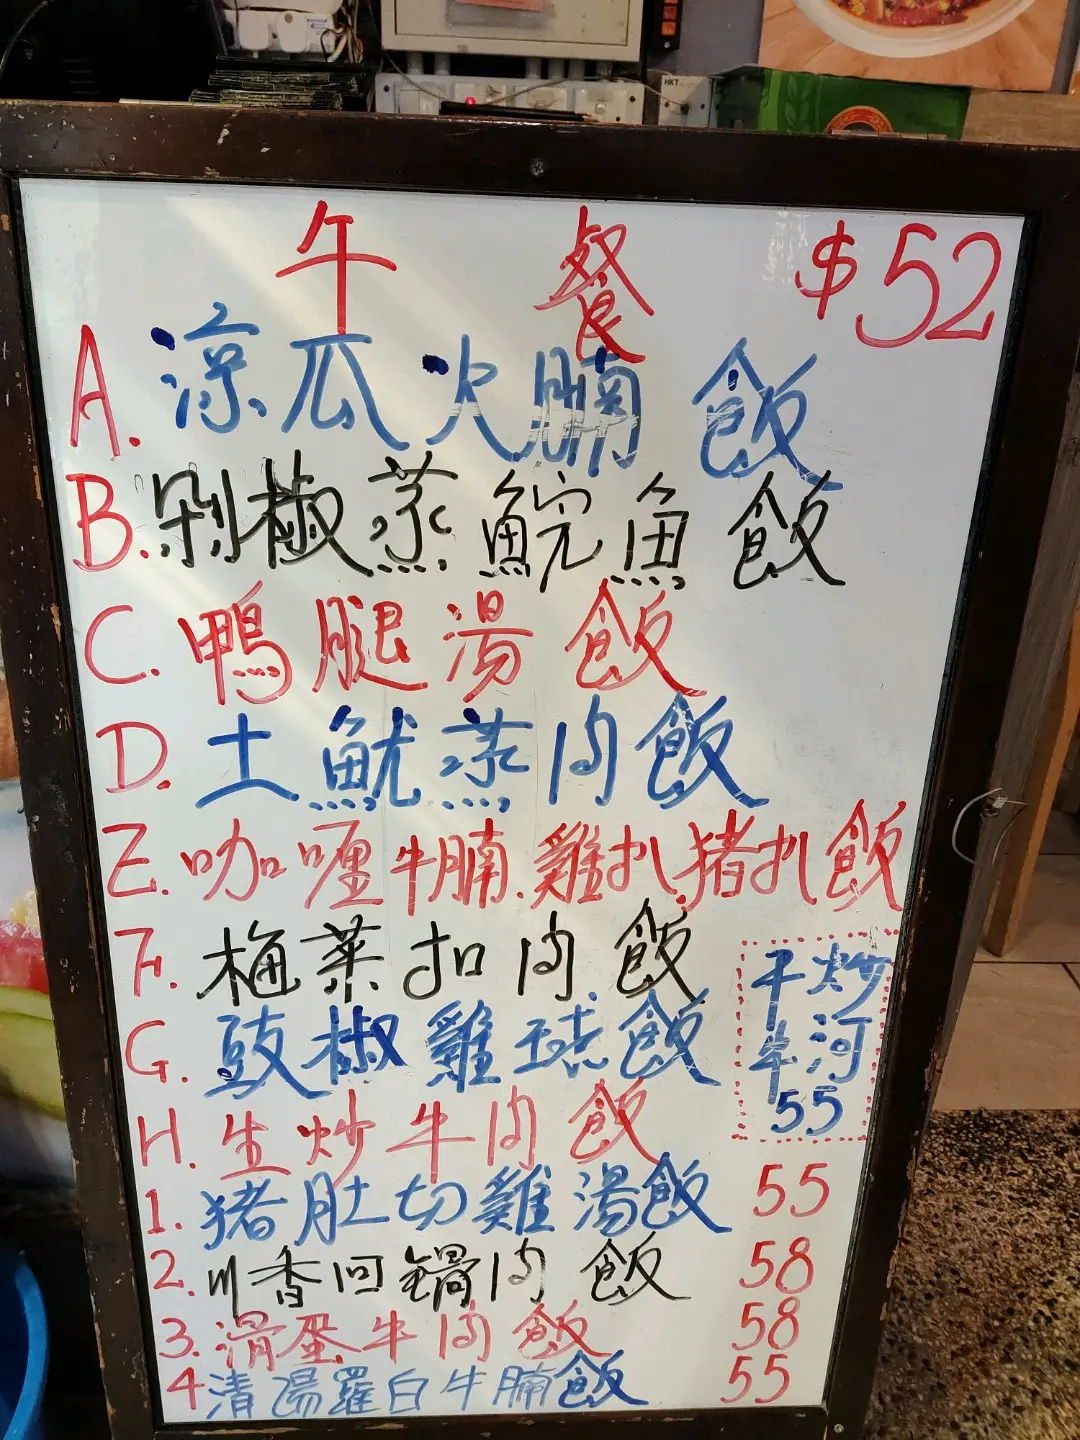 HKT
午 餐 $52
A. 涼瓜火腩飯
B. 剁椒蒸鯇魚飯
C. 鴨腿湯飯
D. 土魷蒸肉飯
E. 咖喱牛腩.雞扒.猪扒飯
F. 梅菜扣肉飯
G. 豉椒雞球飯
干炒
牛河
55
H. 生炒牛肉飯
1. 猪肚切雞湯飯 55
2. 川香回鍋肉飯 58
3. 滑蛋牛肉飯 58
4 清湯羅白牛腩飯 55